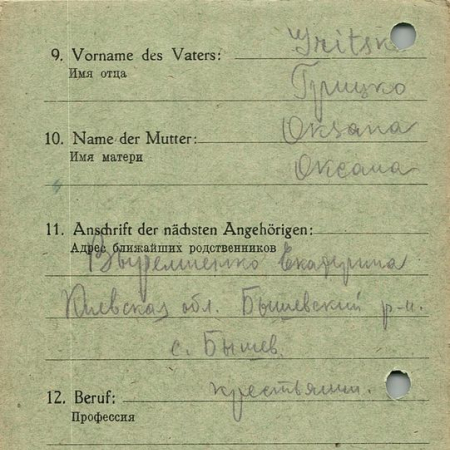 9. Vorname des Vaters: Gritsko
Имя отца
Грицко
10. Name der Mutter: Oksana
Имя матери
Оксана
11. Anschrift der nächsten Angehörigen:
Адрес ближайших родственников
Екатерина
Киевская обл. Бышевский р-н.
с. Бышев.
12. Beruf: крестьянин.
Профессия